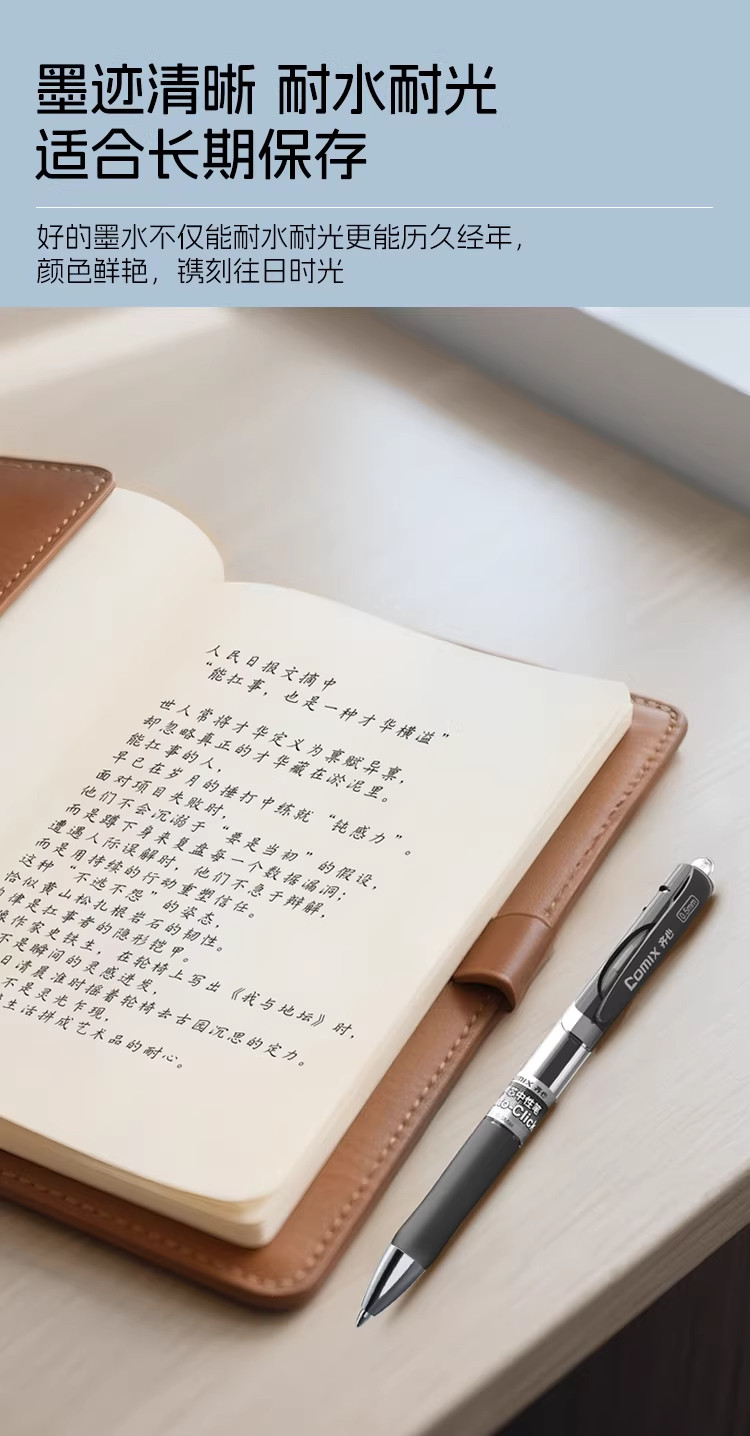 墨迹清晰 耐水耐光
适合长期保存
好的墨水不仅能耐水耐光更能历久经年，
颜色鲜艳，镌刻往日时光
人民日报文摘中
“能扛事，也是一种才华横溢”
世人常将才华定义为禀赋异禀，
却忽略真正的才华藏在淤泥里。
能扛事的人，
早已在岁月的捶打中练就“钝感力”。
面对项目失败时，
他们不会沉溺于“要是当初”的假设，
而是蹲下身来复盘每一个数据漏洞；
遭遇人际误解时，他们不急于辩解，
而是用持续的行动重塑信任。
这种“不逃不怨”的姿态，
恰似黄山松扎根岩石的韧性。
律是扛事者的隐形铠甲。
像作家史铁生，在轮椅上写出《我与地坛》时，
不是瞬间的灵感迸发，
日清晨准时摇着轮椅去古园沉思的定力。
不是灵光乍现，
生活拼成艺术品的耐心。
0.5mm
COMIX 齐心
MIX 齐心
芯中性笔
o-Click